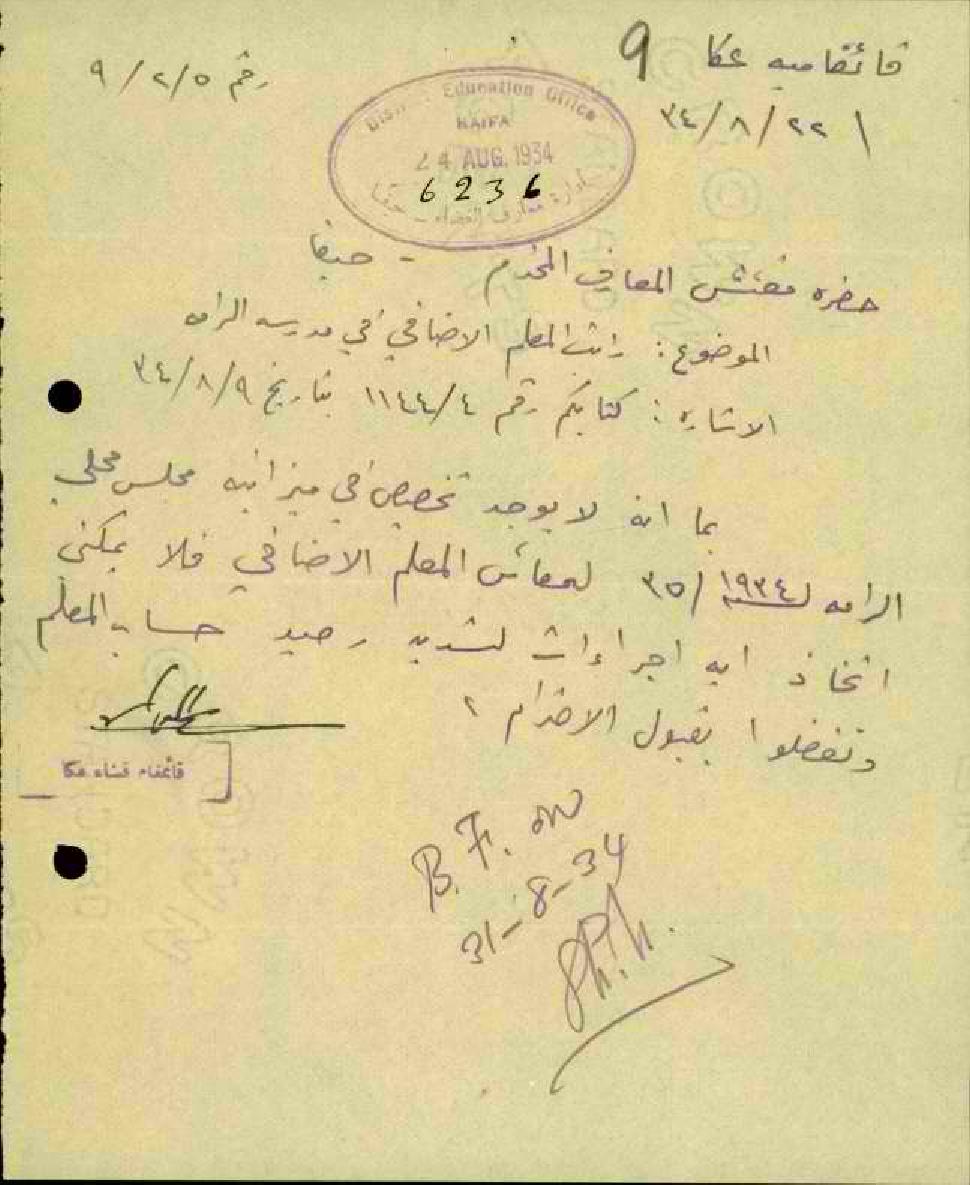 قائمقاميه عكا 9
رقم ٩/٢/٥
٣٤/٨/٢٢
District Education Office
HAIFA
24 AUG. 1934
6236
ادارة معارف القضاء - حيفا
حضره مفتش المعارف المحترم - حيفا
الموضوع: راتب المعلم الاضافي في مدرسه الرامه
الاشاره: كتابكم رقم ١١٤٤/٤ بتاريخ ٣٤/٨/٩
بما انه لا يوجد تخصيص في ميزانيه مجلس محلي
الرامه لسنه ١٩٣٤/٣٥ لمعاش المعلم الاضافي فلا يمكنني
اتخاذ ايه اجراءات لتسديد رصيد حساب المعلم
وتفضلوا بقبول الاحترام ،
قائمقام قضاء عكا
B. F. on
31-8-34